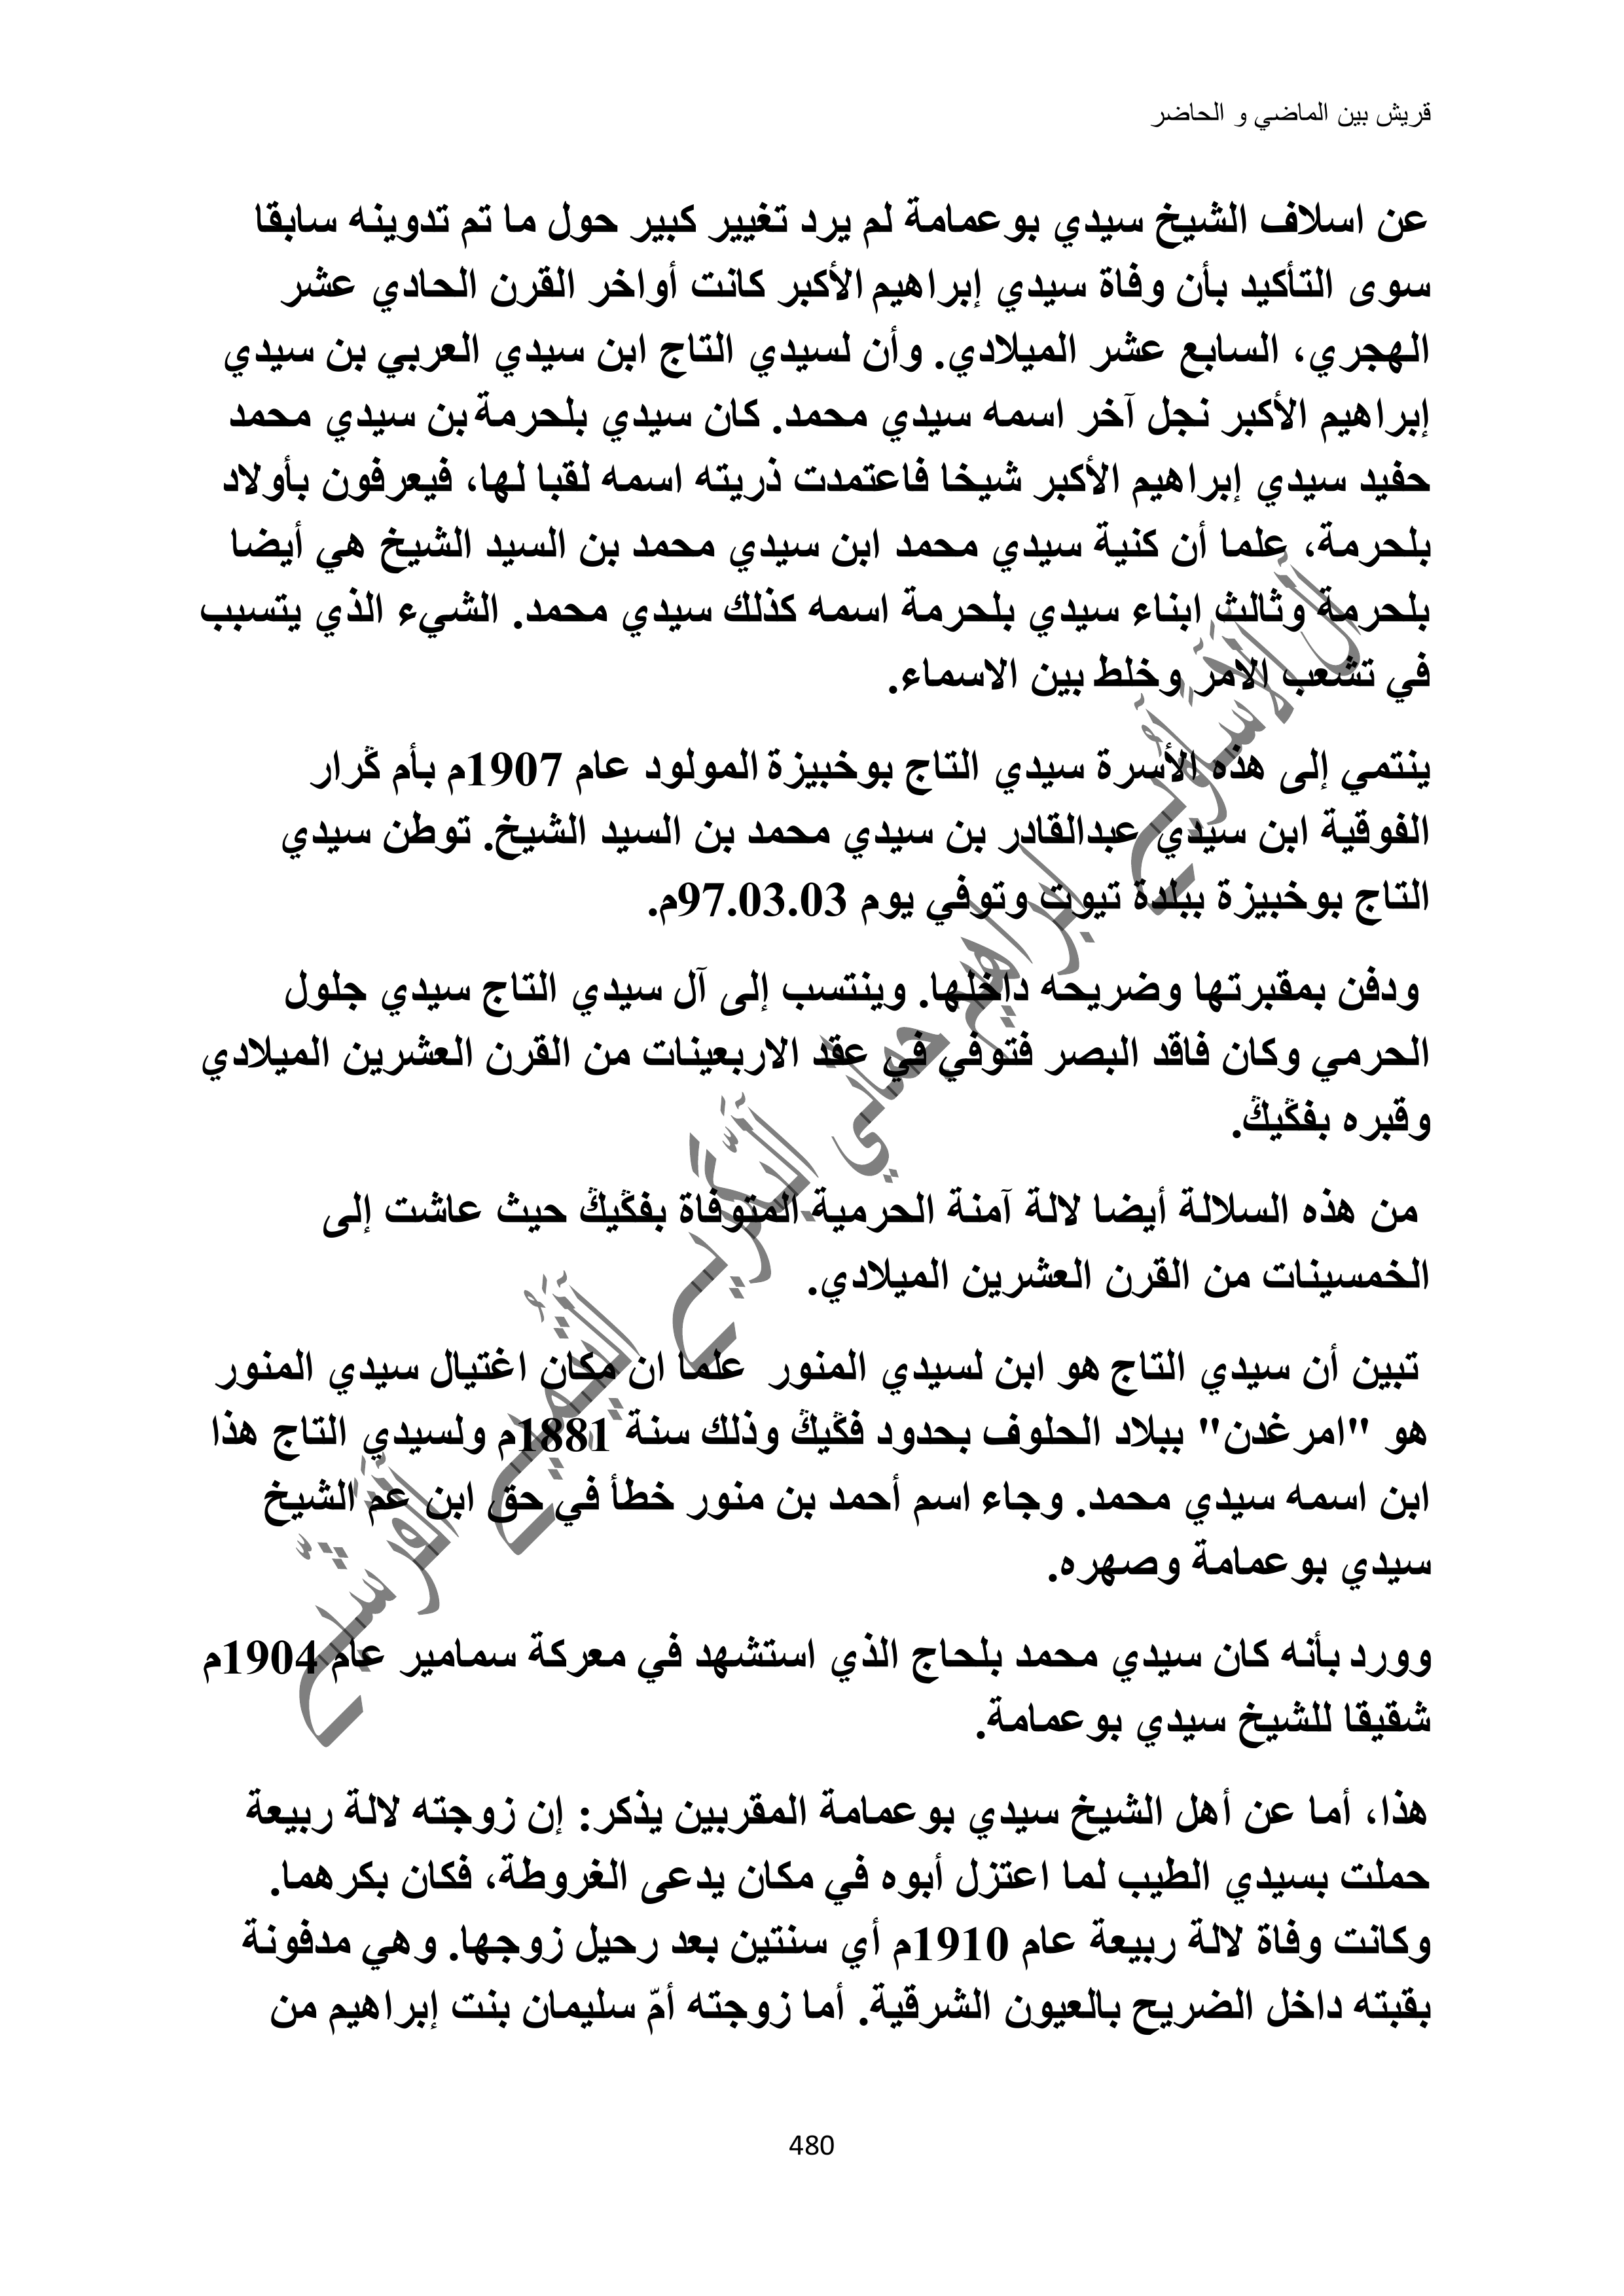 قريش بين الماضي و الحاضر
عن اسلاف الشيخ سيدي بوعمامة لم يرد تغيير كبير حول ما تم تدوينه سابقا
سوى التأكيد بأن وفاة سيدي إبراهيم الأكبر كانت أواخر القرن الحادي عشر
الهجري، السابع عشر الميلادي. وأن لسيدي التاج ابن سيدي العربي بن سيدي
إبراهيم الأكبر نجل آخر اسمه سيدي محمد. كان سيدي بلحرمة بن سيدي محمد
حفيد سيدي إبراهيم الأكبر شيخا فاعتمدت ذريته اسمه لقبا لها، فيعرفون بأولاد
بلحرمة، علما أن كنية سيدي محمد ابن سيدي محمد بن السيد الشيخ هي أيضا
بلحرمة وثالث ابناء سيدي بلحرمة اسمه كذلك سيدي محمد. الشيء الذي يتسبب
في تشعب الامر وخلط بين الاسماء.
ينتمي إلى هذه الأسرة سيدي التاج بوخبيزة المولود عام 1907م بأم ڭرار
الفوقية ابن سيدي عبدالقادر بن سيدي محمد بن السيد الشيخ. توطن سيدي
التاج بوخبيزة ببلدة تيوت وتوفي يوم 97.03.03م.
ودفن بمقبرتها وضريحه داخلها. وينتسب إلى آل سيدي التاج سيدي جلول
الحرمي وكان فاقد البصر فتوفي في عقد الاربعينات من القرن العشرين الميلادي
وقبره بفڭيڭ.
من هذه السلالة أيضا لالة آمنة الحرمية المتوفاة بفڭيڭ حيث عاشت إلى
الخمسينات من القرن العشرين الميلادي.
تبين أن سيدي التاج هو ابن لسيدي المنور علما ان مكان اغتيال سيدي المنور
هو "امرغدن" ببلاد الحلوف بحدود فڭيڭ وذلك سنة 1881م ولسيدي التاج هذا
ابن اسمه سيدي محمد. وجاء اسم أحمد بن منور خطأ في حق ابن عم الشيخ
سيدي بوعمامة وصهره.
وورد بأنه كان سيدي محمد بلحاج الذي استشهد في معركة سمامير عام 1904م
شقيقا للشيخ سيدي بوعمامة.
هذا، أما عن أهل الشيخ سيدي بوعمامة المقربين يذكر: إن زوجته لالة ربيعة
حملت بسيدي الطيب لما اعتزل أبوه في مكان يدعى الغروطة، فكان بكرهما.
وكانت وفاة لالة ربيعة عام 1910م أي سنتين بعد رحيل زوجها. وهي مدفونة
بقبته داخل الضريح بالعيون الشرقية. أما زوجته أمّ سليمان بنت إبراهيم من
480